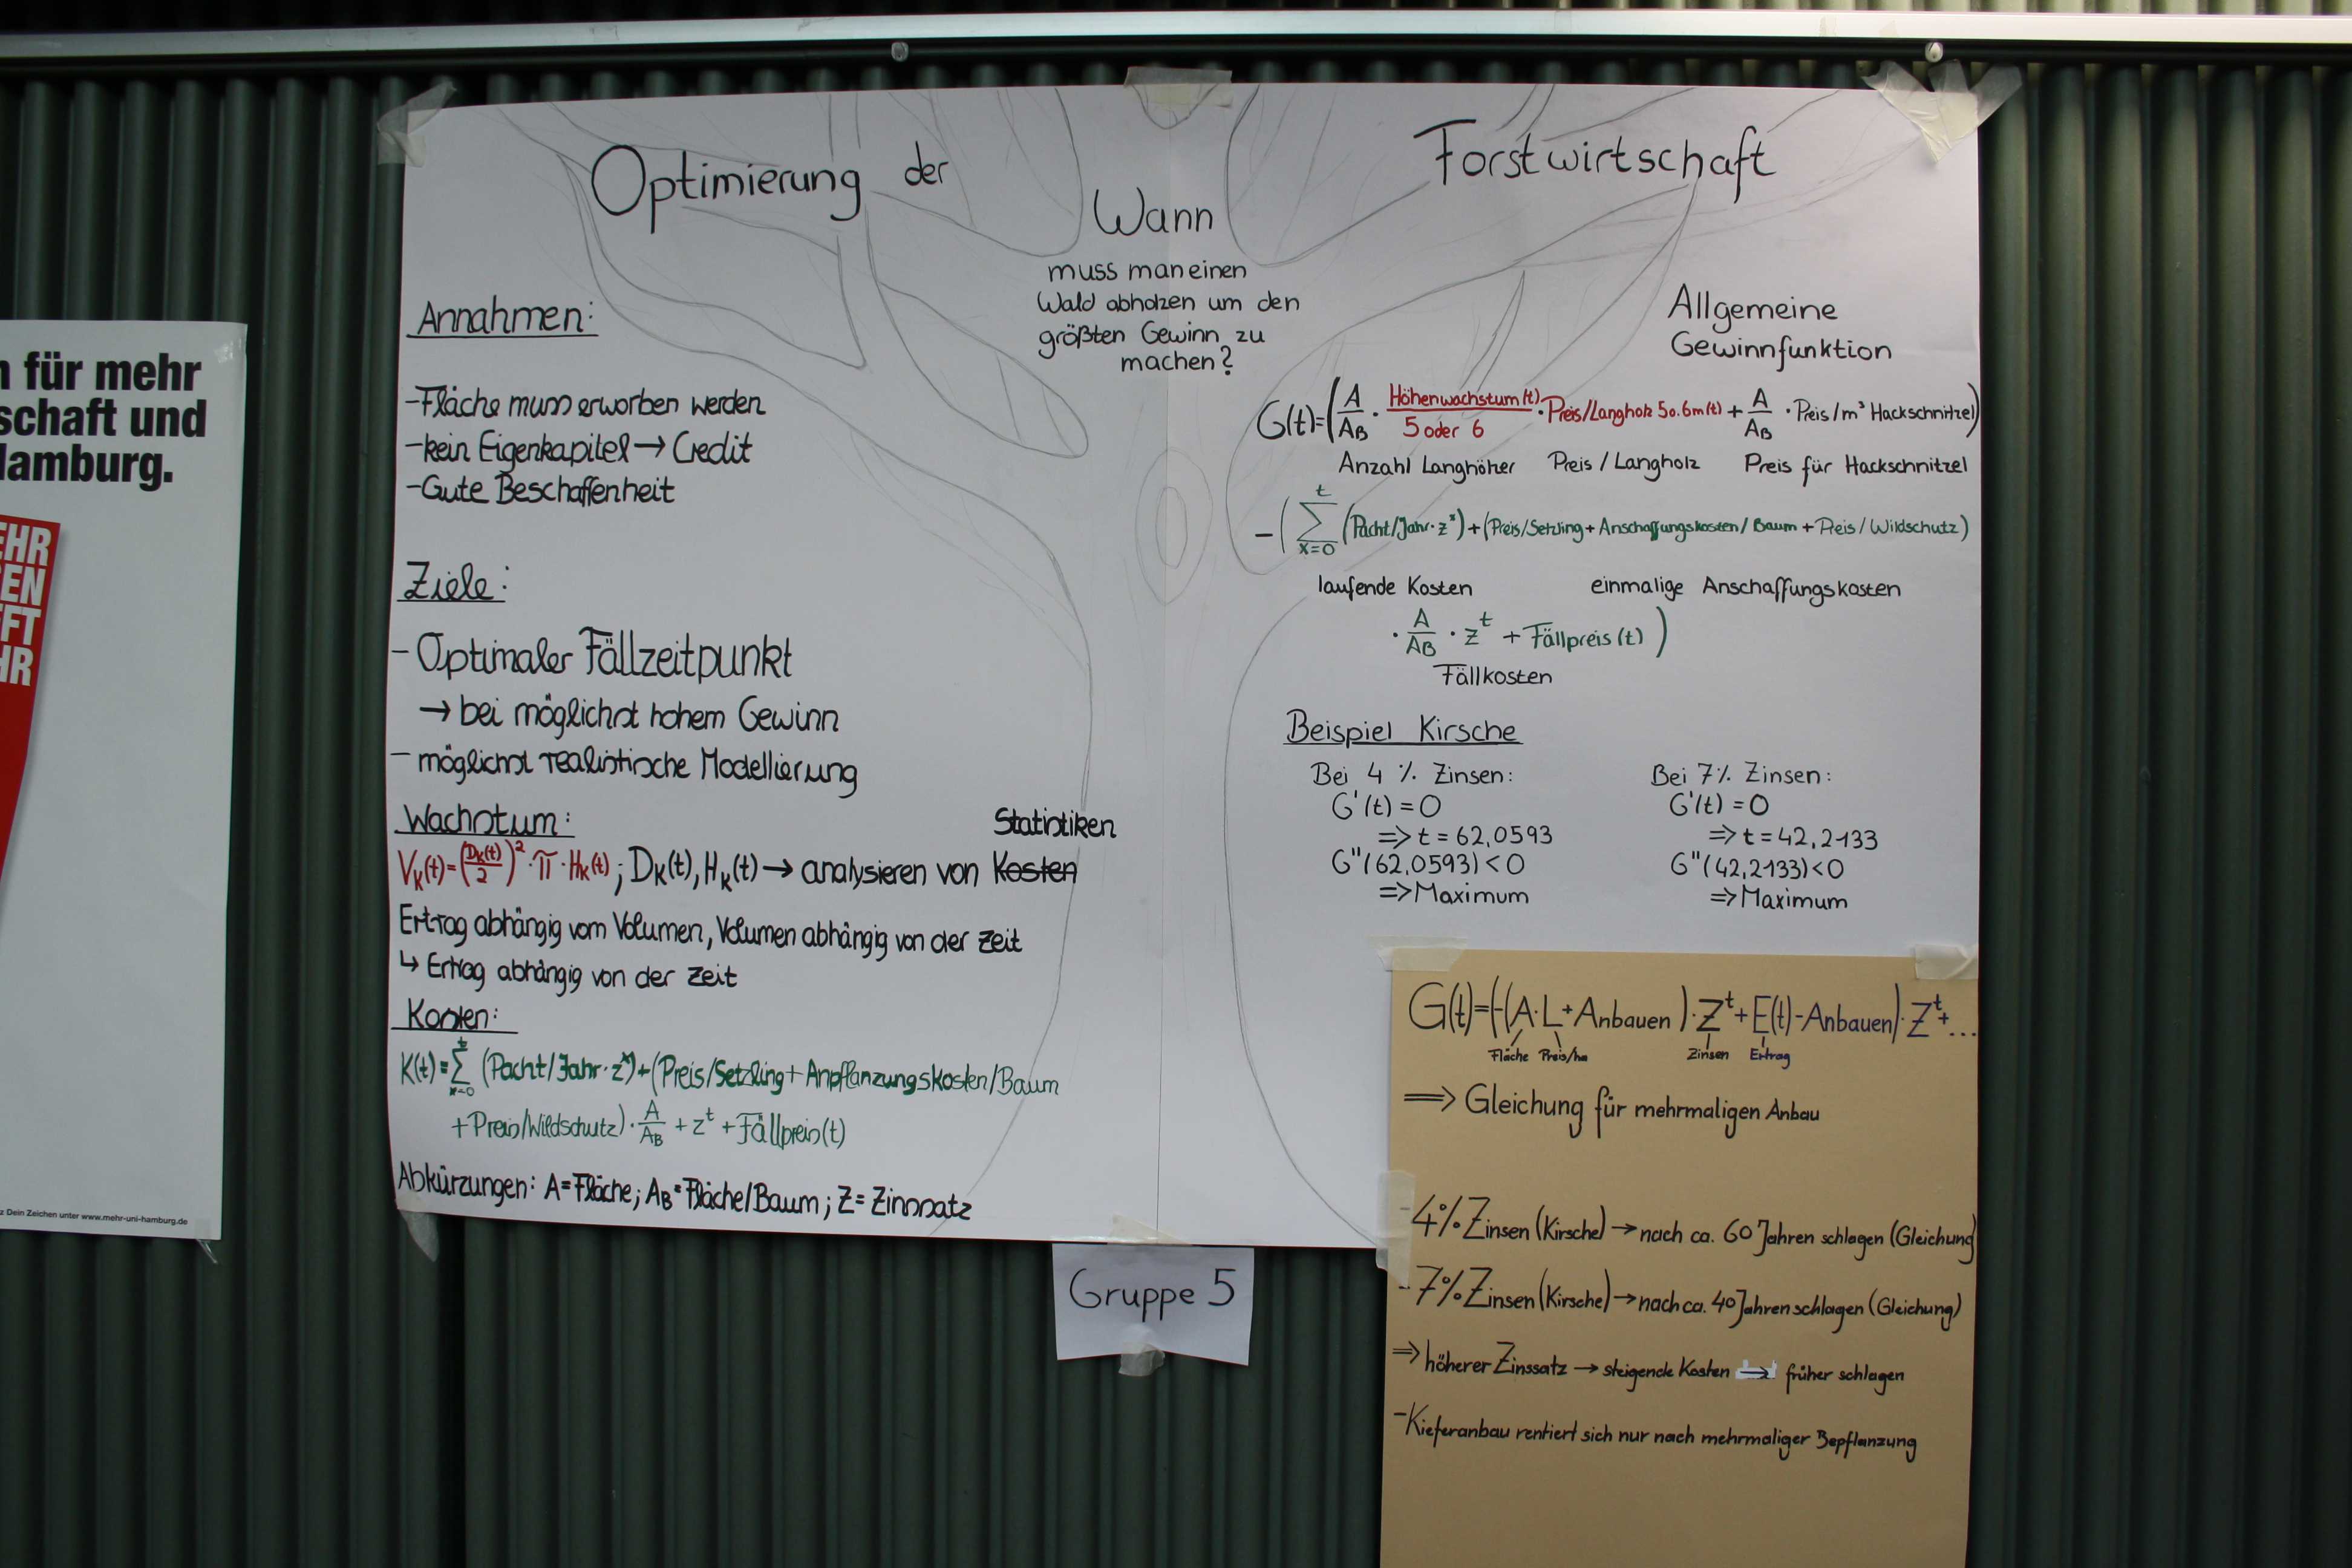 Optimierung der Forstwirtschaft
Wann
muss man einen
Wald abholzen um den
größten Gewinn zu
machen?
Annahmen:
-Fläche muss erworben werden
-kein Eigenkapitel → Credit
-Gute Beschaffenheit
Ziele:
- Optimaler Fällzeitpunkt
→ bei möglichst hohem Gewinn
- möglichst realistische Modellierung
Wachstum:
Statistiken
V_K(t)=(D_K(t)/2)²·π·H_K(t); D_K(t), H_K(t) → analysieren von Kosten
Ertrag abhängig vom Volumen, Volumen abhängig von der Zeit
↳ Ertrag abhängig von der Zeit
Kosten:
K(t)=∑_{x=0}^{t} (Pacht/Jahr·z^x)+(Preis/Setzling+Anpflanzungskosten/Baum
+Preis/Wildschutz)·A/A_B + z^t + Fällpreis(t)
Abkürzungen: A=Fläche; A_B=Fläche/Baum; Z=Zinssatz
Allgemeine
Gewinnfunktion
G(t)=(A/A_B · Höhenwachstum(t)/5 oder 6 · Preis/Langholz 5o.6m(t) + A/A_B · Preis/m³ Hackschnitzel)
Anzahl Langhölzer Preis / Langholz Preis für Hackschnitzel
-(∑_{x=0}^{t} (Pacht/Jahr·z^x)+(Preis/Setzling+Anschaffungskosten/Baum+Preis/Wildschutz)
laufende Kosten einmalige Anschaffungskosten
· A/A_B · z^t + Fällpreis(t))
Fällkosten
Beispiel Kirsche
Bei 4 % Zinsen:
G'(t)=0
=> t=62,0593
G''(62,0593)<0
=> Maximum
Bei 7% Zinsen:
G'(t)=0
=> t=42,2133
G''(42,2133)<0
=> Maximum
G(t)=(-(A·L+Anbauen)·Z^t+E(t)-Anbauen)·Z^t+...
Fläche Preis/ha Zinsen Ertrag
⇒ Gleichung für mehrmaligen Anbau
-4% Zinsen (Kirsche) → nach ca. 60 Jahren schlagen (Gleichung)
-7% Zinsen (Kirsche) → nach ca. 40 Jahren schlagen (Gleichung)
⇒ höherer Zinssatz → steigende Kosten → früher schlagen
-Kieferanbau rentiert sich nur nach mehrmaliger Bepflanzung
Gruppe 5
für mehr
schaft und
amburg.
EHR
EN
FT
HR
Dein Zeichen unter www.mehr-uni-hamburg.de